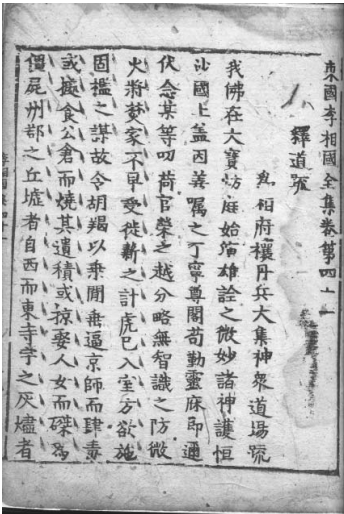 東國李相國全集卷第四十一
釋道疏
爲相府禳丹兵大集神衆道場疏
我佛在大寶坊庭始演雄詮之微妙諸神護恒
沙國土盖因善囑之丁寧尊閣苟勤靈庥即通
伏念某等叨荷官榮之越分略無智識之防微
火將焚家不早受徙薪之計虎已入室方欲施
固檻之謀故令胡羯以乗間乗逼京師而肆毒
或搋食公倉而燒其遺積或掠娶人女而磔爲
僵屍州郡之丘墟者自西而東寺宇之灰燼者